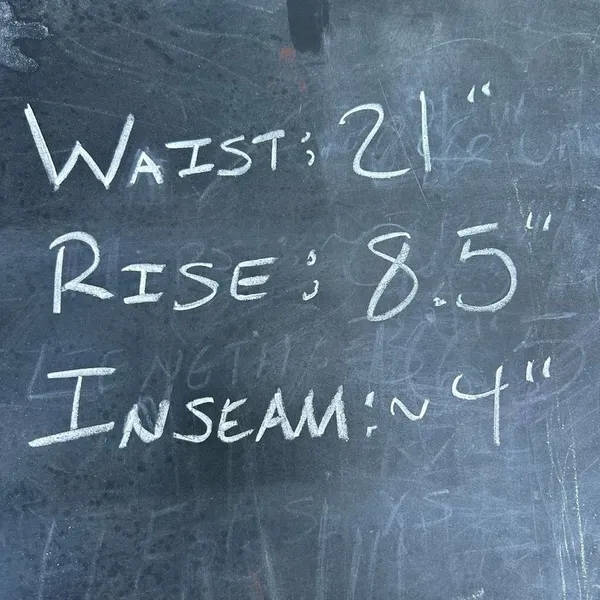 WAIST: 21"
RISE: 8.5"
INSEAM: ~ 4"